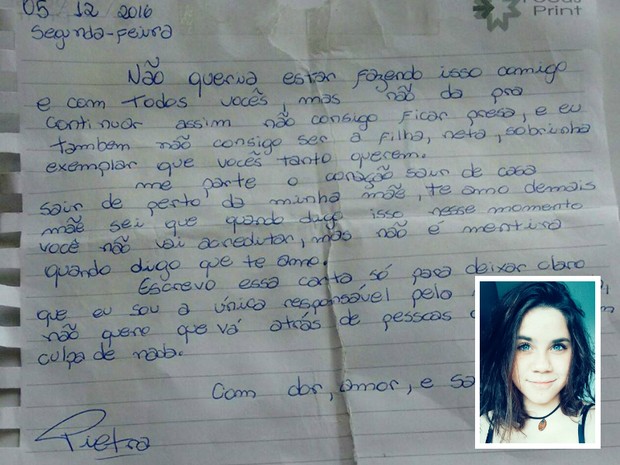 05/12/2016
Segunda-Feira
Print
Não queria estar fazendo isso comigo
e com todos vocês, mas não da pra
continuar assim não consigo ficar presa, e eu
também não consigo ser a filha, neta, sobrinha
exemplar que vocês tanto querem.
me parte o coração sair de casa
sair de perto da minha mãe, te amo demais
mãe sei que quando digo isso nesse momento
você não vai acreditar, mas não é mentira
quando digo que te amo.
Escrevo essa carta só para deixar claro
que eu sou a única responsável pelo
não quero que vá atrás de pessoas
culpa de nada.
Com dor, amor, e
Pietra